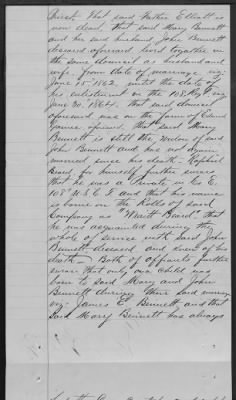 that said Father Elliott is
now dead, that said Mary Bennett
and her said husband John Bennett
deceased aforesaid lived together in
the same domicil as husband and
wife from date of marriage viz;
June 15th 1862 until the date of
his enlistment in the 108 Regt viz
June 30, 1864. That said domicil
aforesaid was on the farm of
aforesaid, that said Mary
Bennett is still the widow of said
John Bennett and has not again
married since his death. Raphael
Beard for himself further swears
that he was a Private in Co E.
108" U.S.C.T. and that his name
is borne on the Rolls of said
Company as "Beard" that
he was acquainted during the
whole of service with said John
Bennett deceased and knew of his
death. Both of affiants further
swear that only one child was
born to said Mary and John
Bennett during their said marriage
viz: James E. Bennett, and that
said Mary Bennett has always